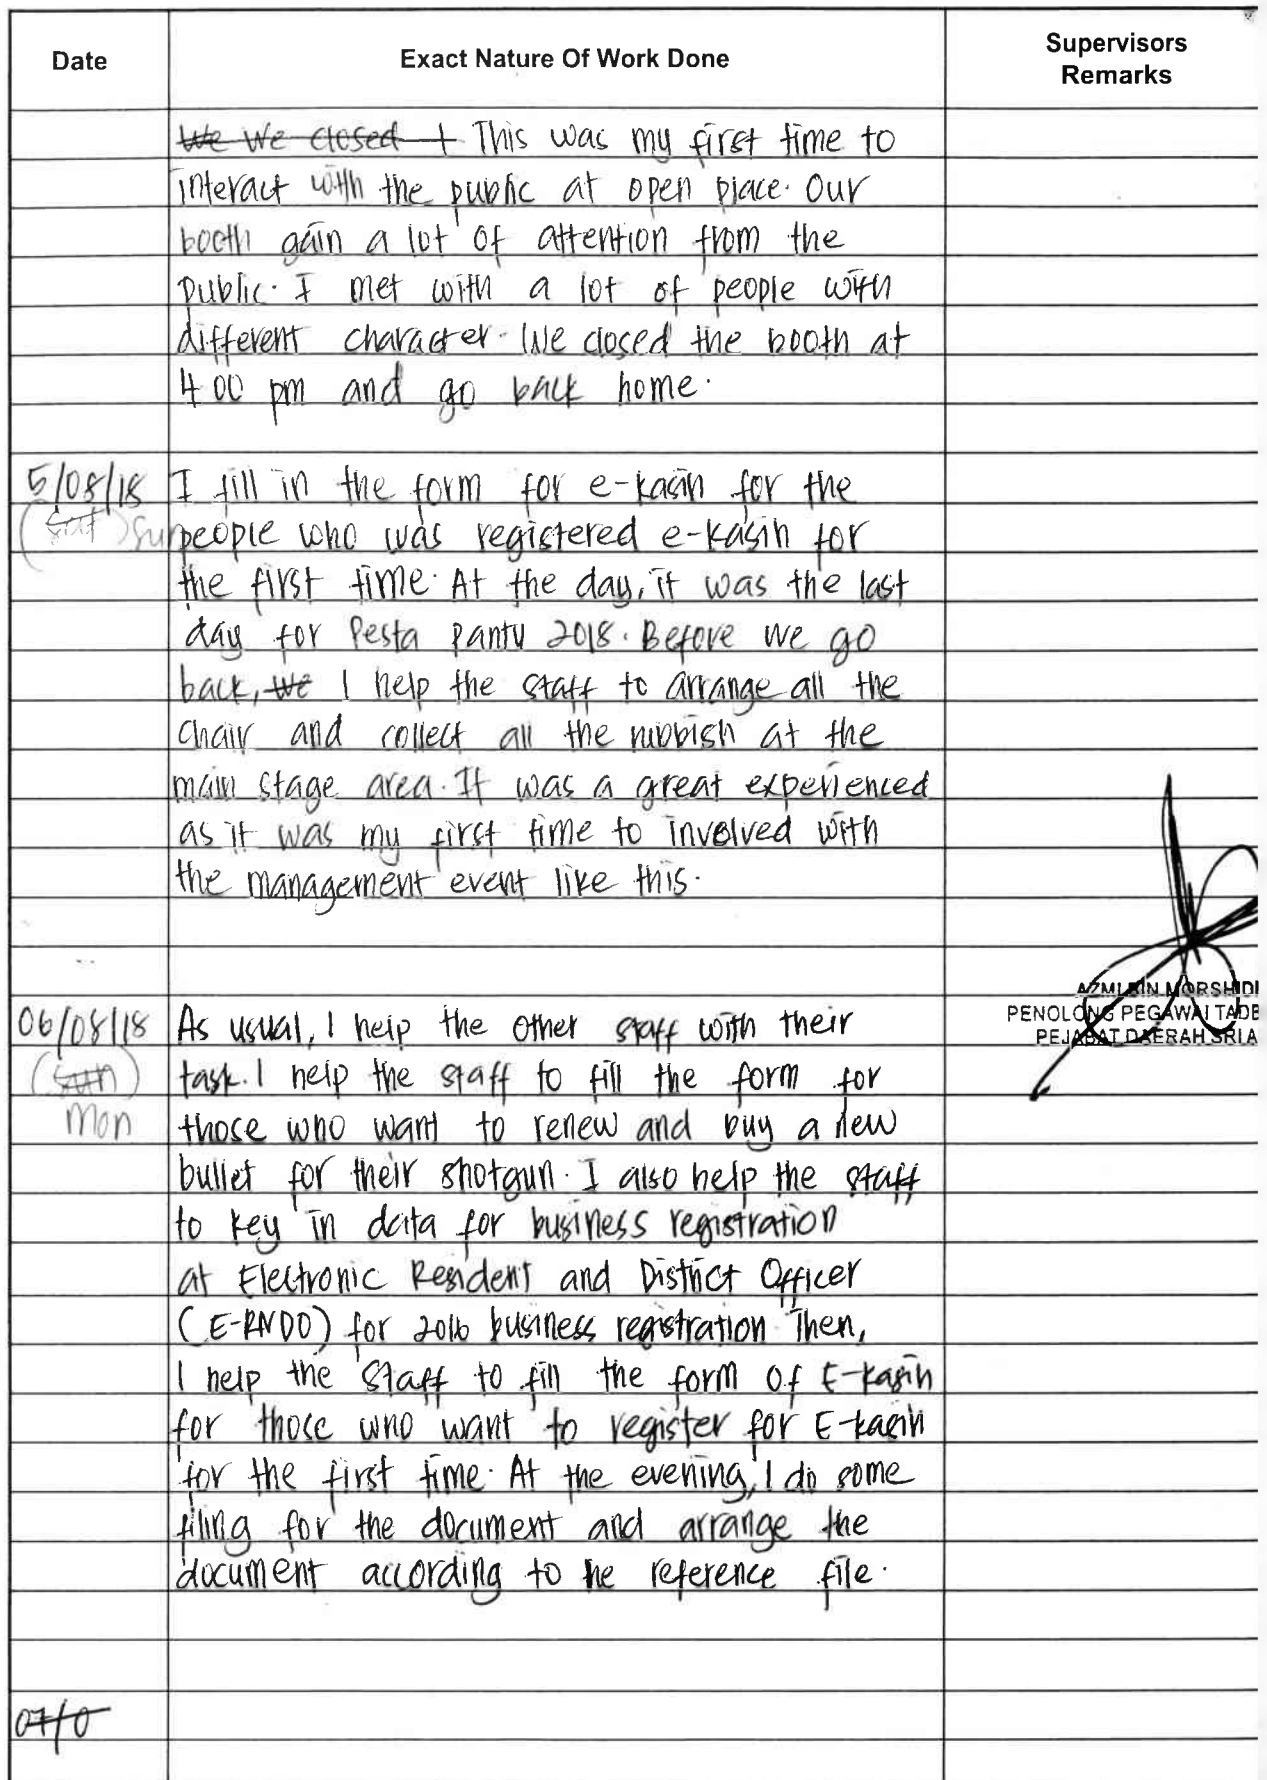 Date
Exact Nature Of Work Done
Supervisors
Remarks
We We closed t This was my first time to
interact with the public at open place. Our
booth gain a lot of attention from the
public. I met with a lot of people with
different character. We closed the booth at
4.00 pm and go back home.
5/08/18
(Sat) Sun
I fill in the form for e-kasin for the
people who was registered e-kasin for
the first time. At the day, it was the last
day for Pesta Pantu 2018. Before we go
back, we I help the staff to arrange all the
chair and collect all the rubbish at the
main stage area. It was a great experienced
as it was my first time to involved with
the management event like this.
AZMI BIN MORSHIDI
PENOLONG PEGAWAI TADB
PEJABAT DAERAH SRI A
06/08/18
(Sun)
Mon
As usual, I help the other staff with their
task. I help the staff to fill the form for
those who want to renew and buy a new
bullet for their shotgun. I also help the staff
to key in data for business registration
at Electronic Resident and District Officer
(E-RNDO) for 2016 business registration. Then,
I help the staff to fill the form of E-kasih
for those who want to register for E-kasih
for the first time. At the evening, I do some
filing for the document and arrange the
document according to he reference file.
07/0